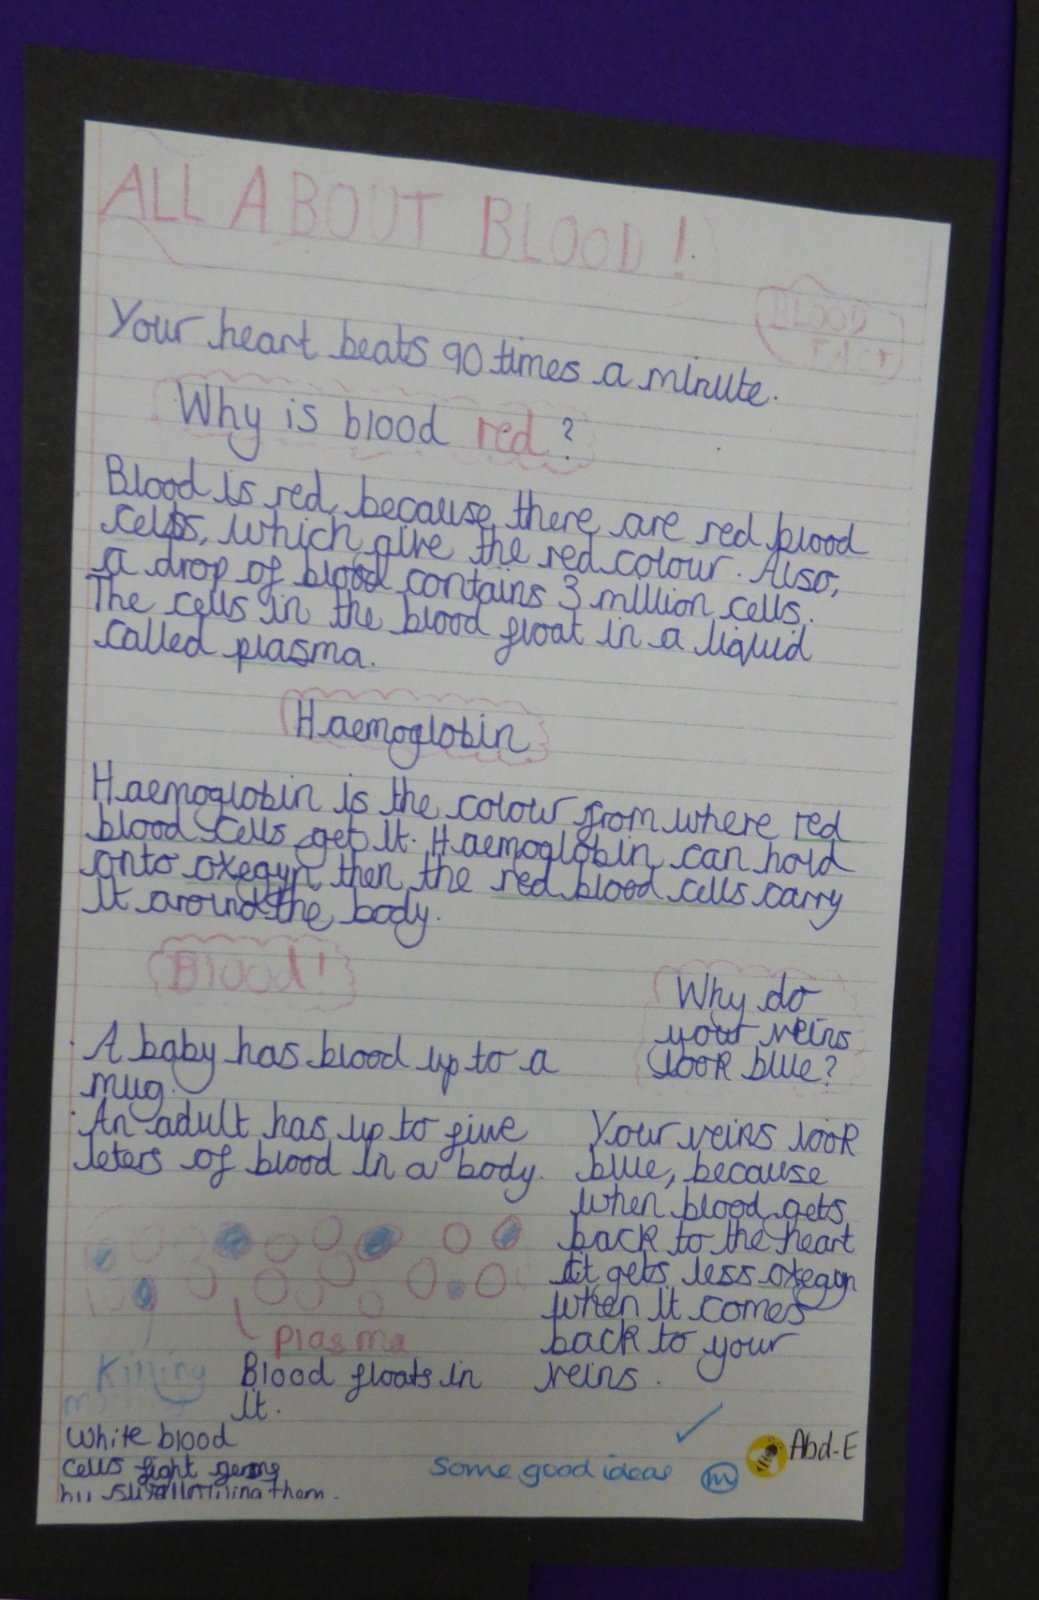 ALL ABOUT BLOOD!
BLOOD
FACT
Your heart beats 90 times a minute.
Why is blood red?
Blood is red, because there are red blood
cells, which give the red colour. Also,
a drop of blood contains 3 million cells.
The cells in the blood float in a liquid
called plasma.
Haemoglobin
Haemoglobin is the colour from where red
blood cells get it. Haemoglobin can hold
onto oxegyn then the red blood cells carry
it around the body.
Blood!
A baby has blood up to a
mug.
An adult has up to five
leters of blood in a body.
Plasma
Blood floats in
it.
Killing
White blood
cells fight germs
by swallowing them.
Why do
your veins
look blue?
Your veins look
blue, because
when blood gets
back to the heart
it gets less oxegyn
when it comes
back to your
veins.
Some good ideas m
Abd-E